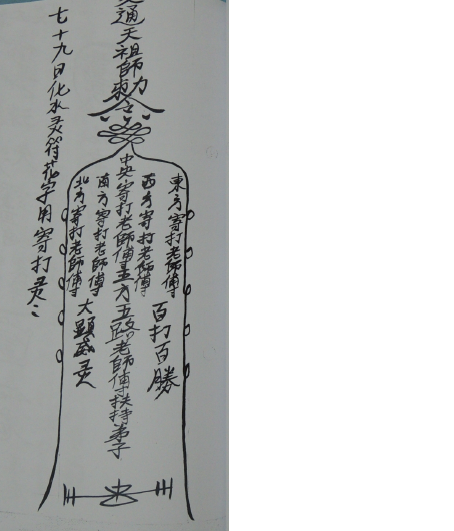 通天祖師勅令
東方寄打老師傅
西方寄打老師傅
中央寄打老師傅五方五路老師傅扶持弟子
南方寄打老師傅
北方寄打老師傅
百打百勝
大顯威灵
七十九日化水灵符花字用寄打灵